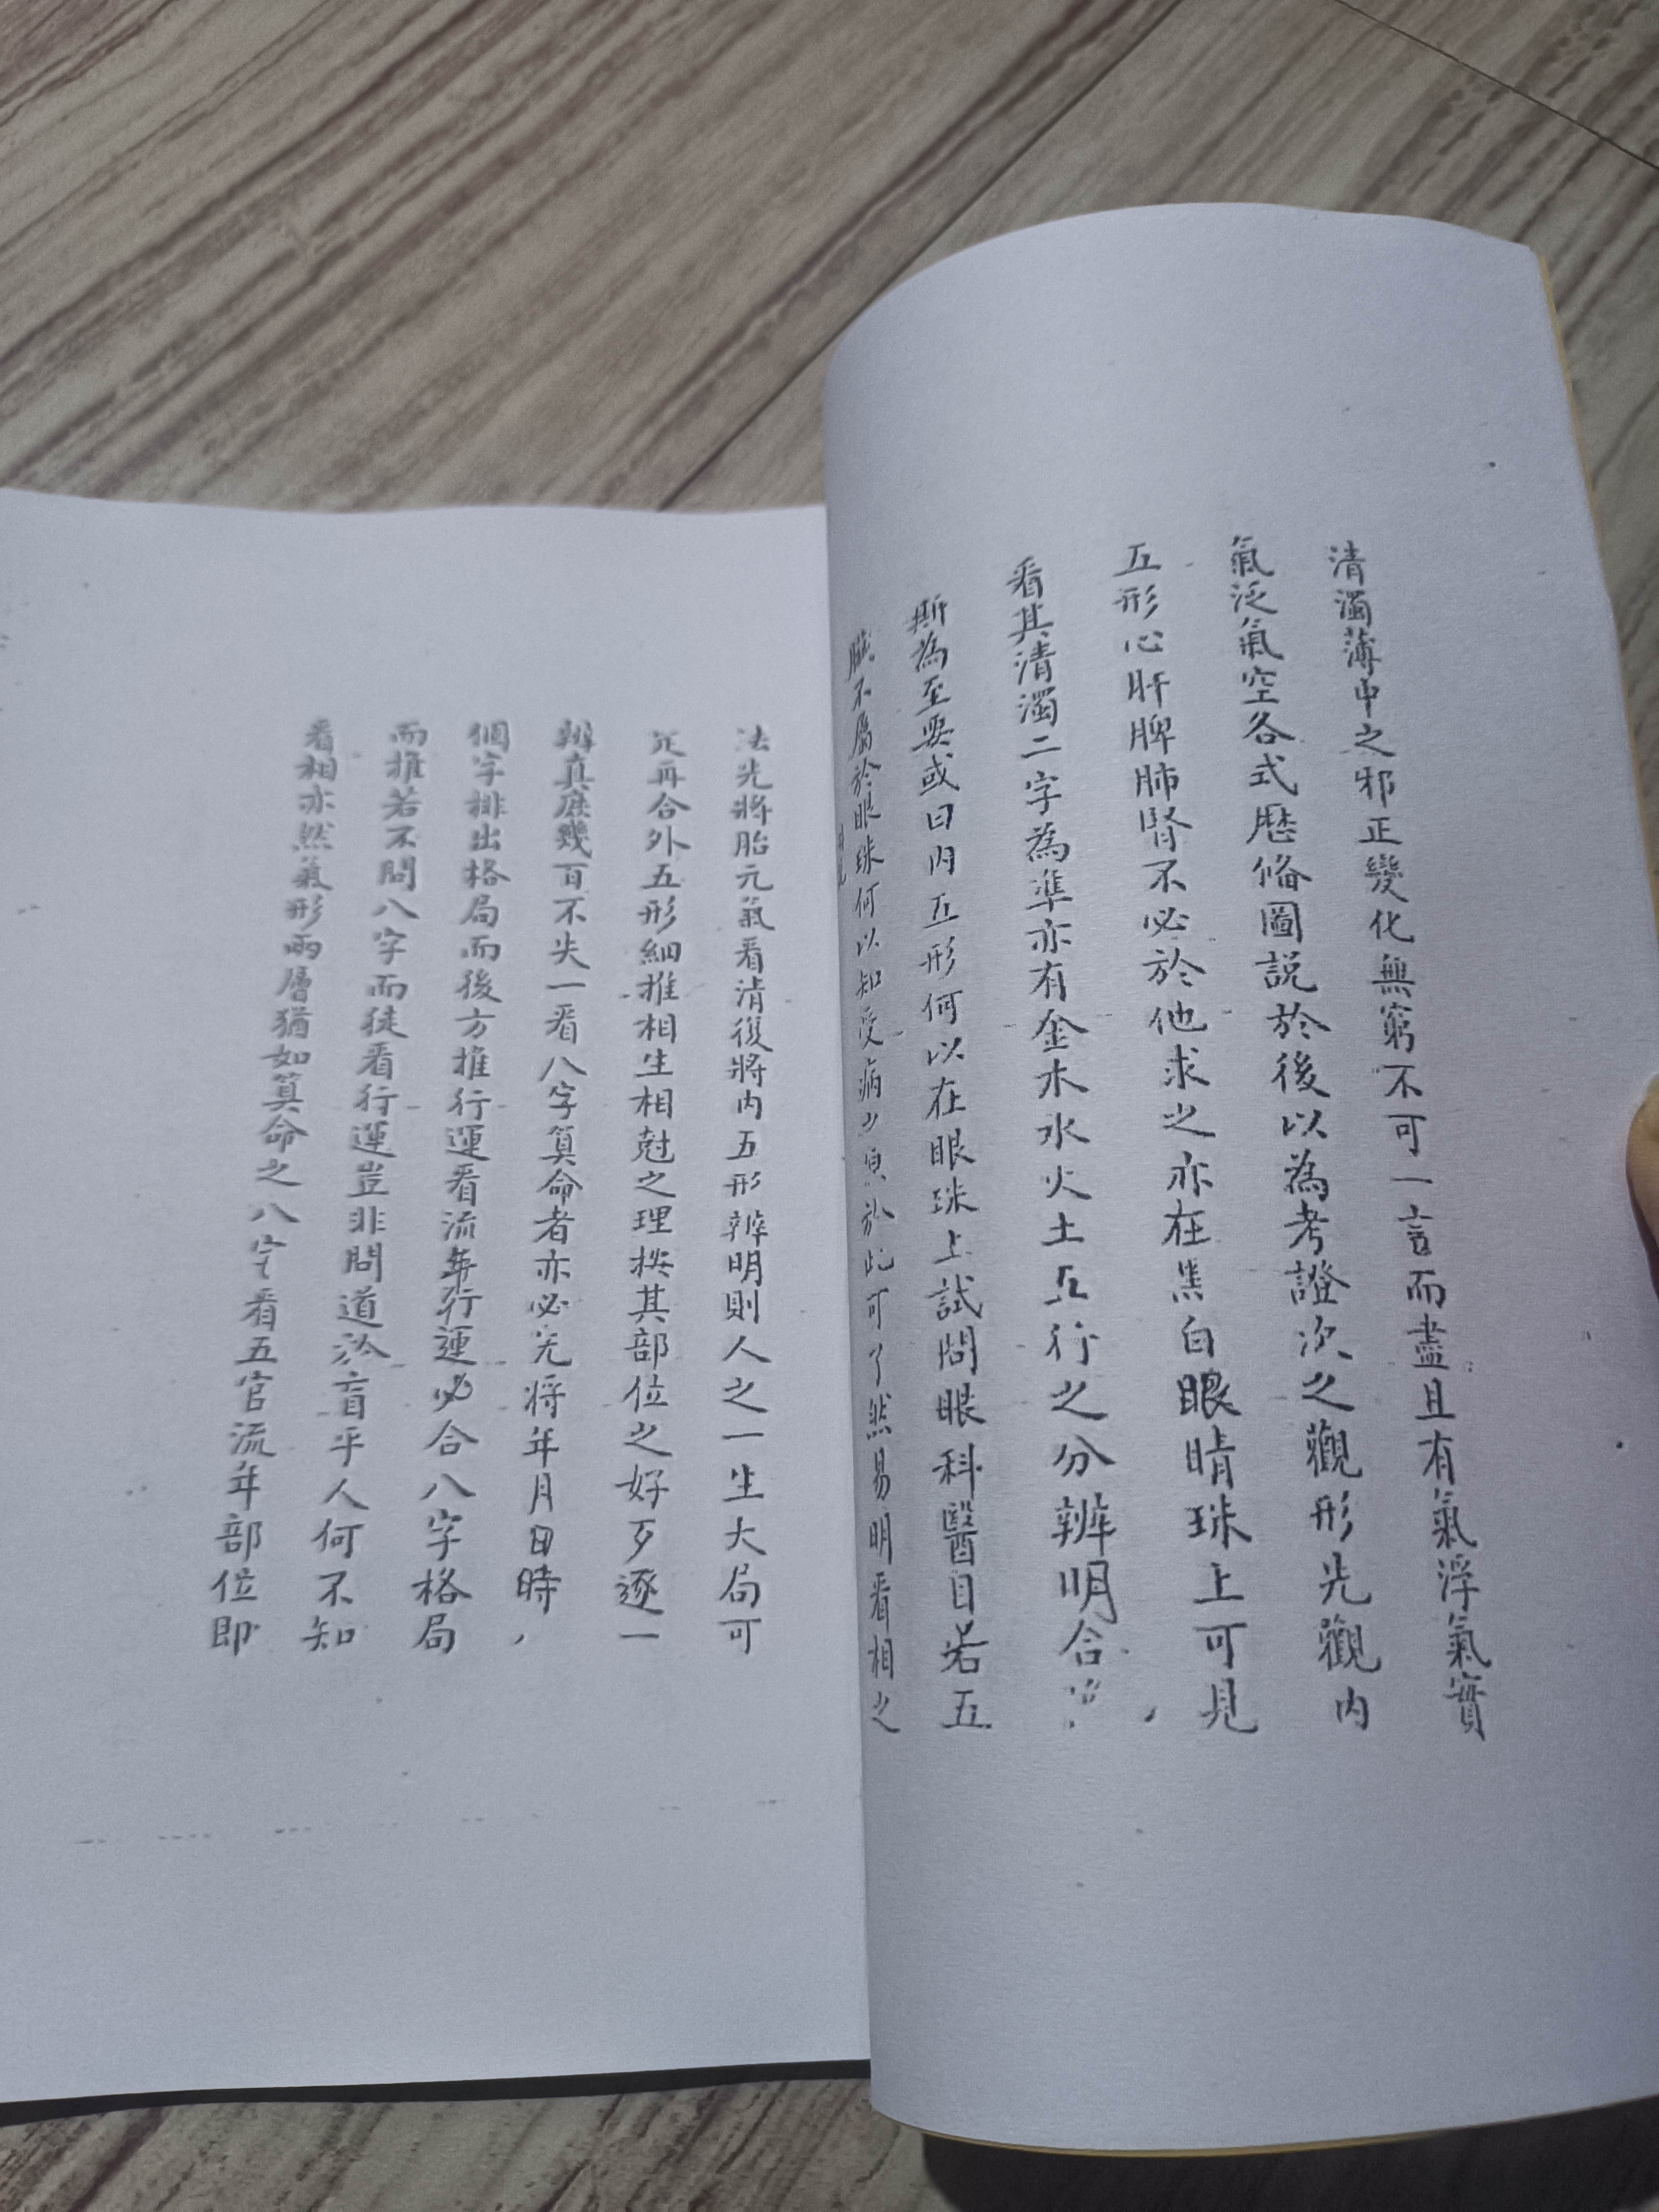 清濁薄中之邪正變化無窮不可一言而盡且有氣浮氣實
氣泛氣空各式歷俻圖説於後以為考證次之觀形先觀内
五形心肝脾肺腎不必於他求之亦在黑白眼睛珠上可見
看其清濁二字為準亦有金木水火土五行之分辨明合
斯為至要或曰内五形何以在眼珠上試問眼科醫目若五
臟不屬於眼珠何以知受病之原於此可了然易明看相之
法先將胎元氣看清後將内五形辨明則人之一生大局可
定再合外五形細推相生相尅之理按其部位之好歹逐一
辨真庶幾百不失一看八字算命者亦必先將年月日時
個字排出格局而後方推行運看流年行運必合八字格局
而推若不問八字而徒看行運豈非問道於盲乎人何不知
看相亦然氣形兩層猶如算命之八字看五官流年部位即